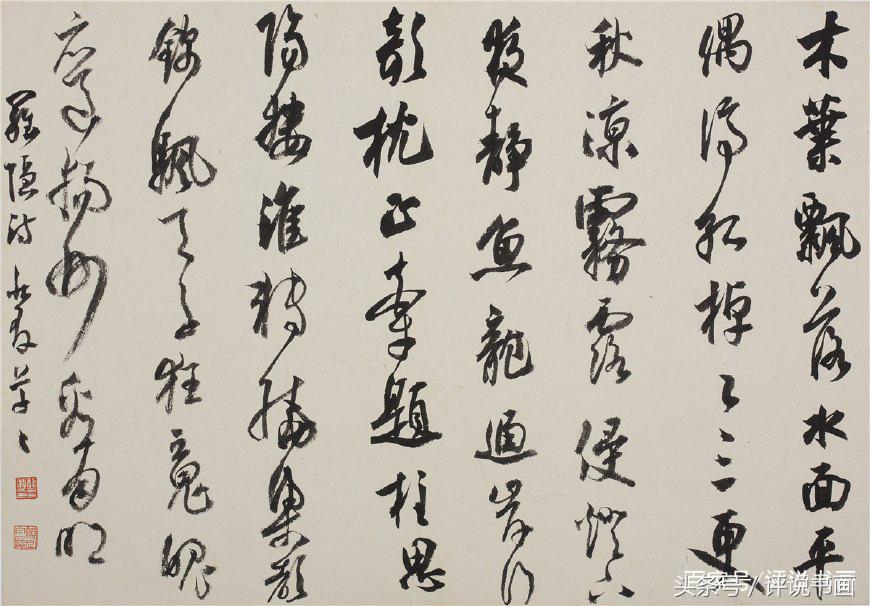 木葉飄落水面平
偶孤棹已三更
秋涼霧露侵燈下
夜靜魚龍逼岸行
欹枕正牽題柱思
隔樓誰轉繞梁聲
錦颿天子狂魂魄
應過揚州看月明
羅隱詩
头条号/评说书画